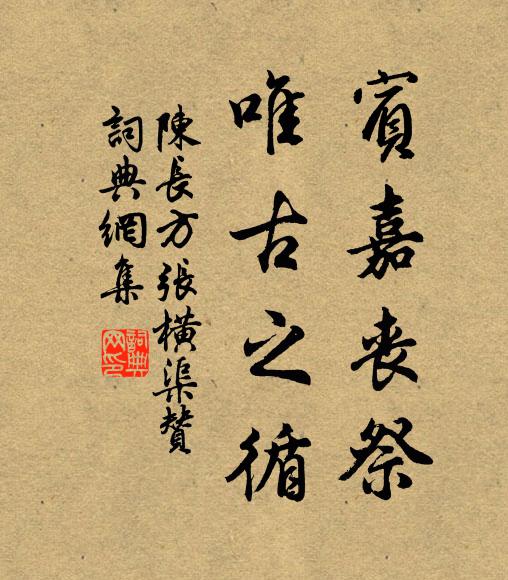 賓嘉喪祭
唯古之循
陳長方張橫渠贊
詞典網集
詞典网印